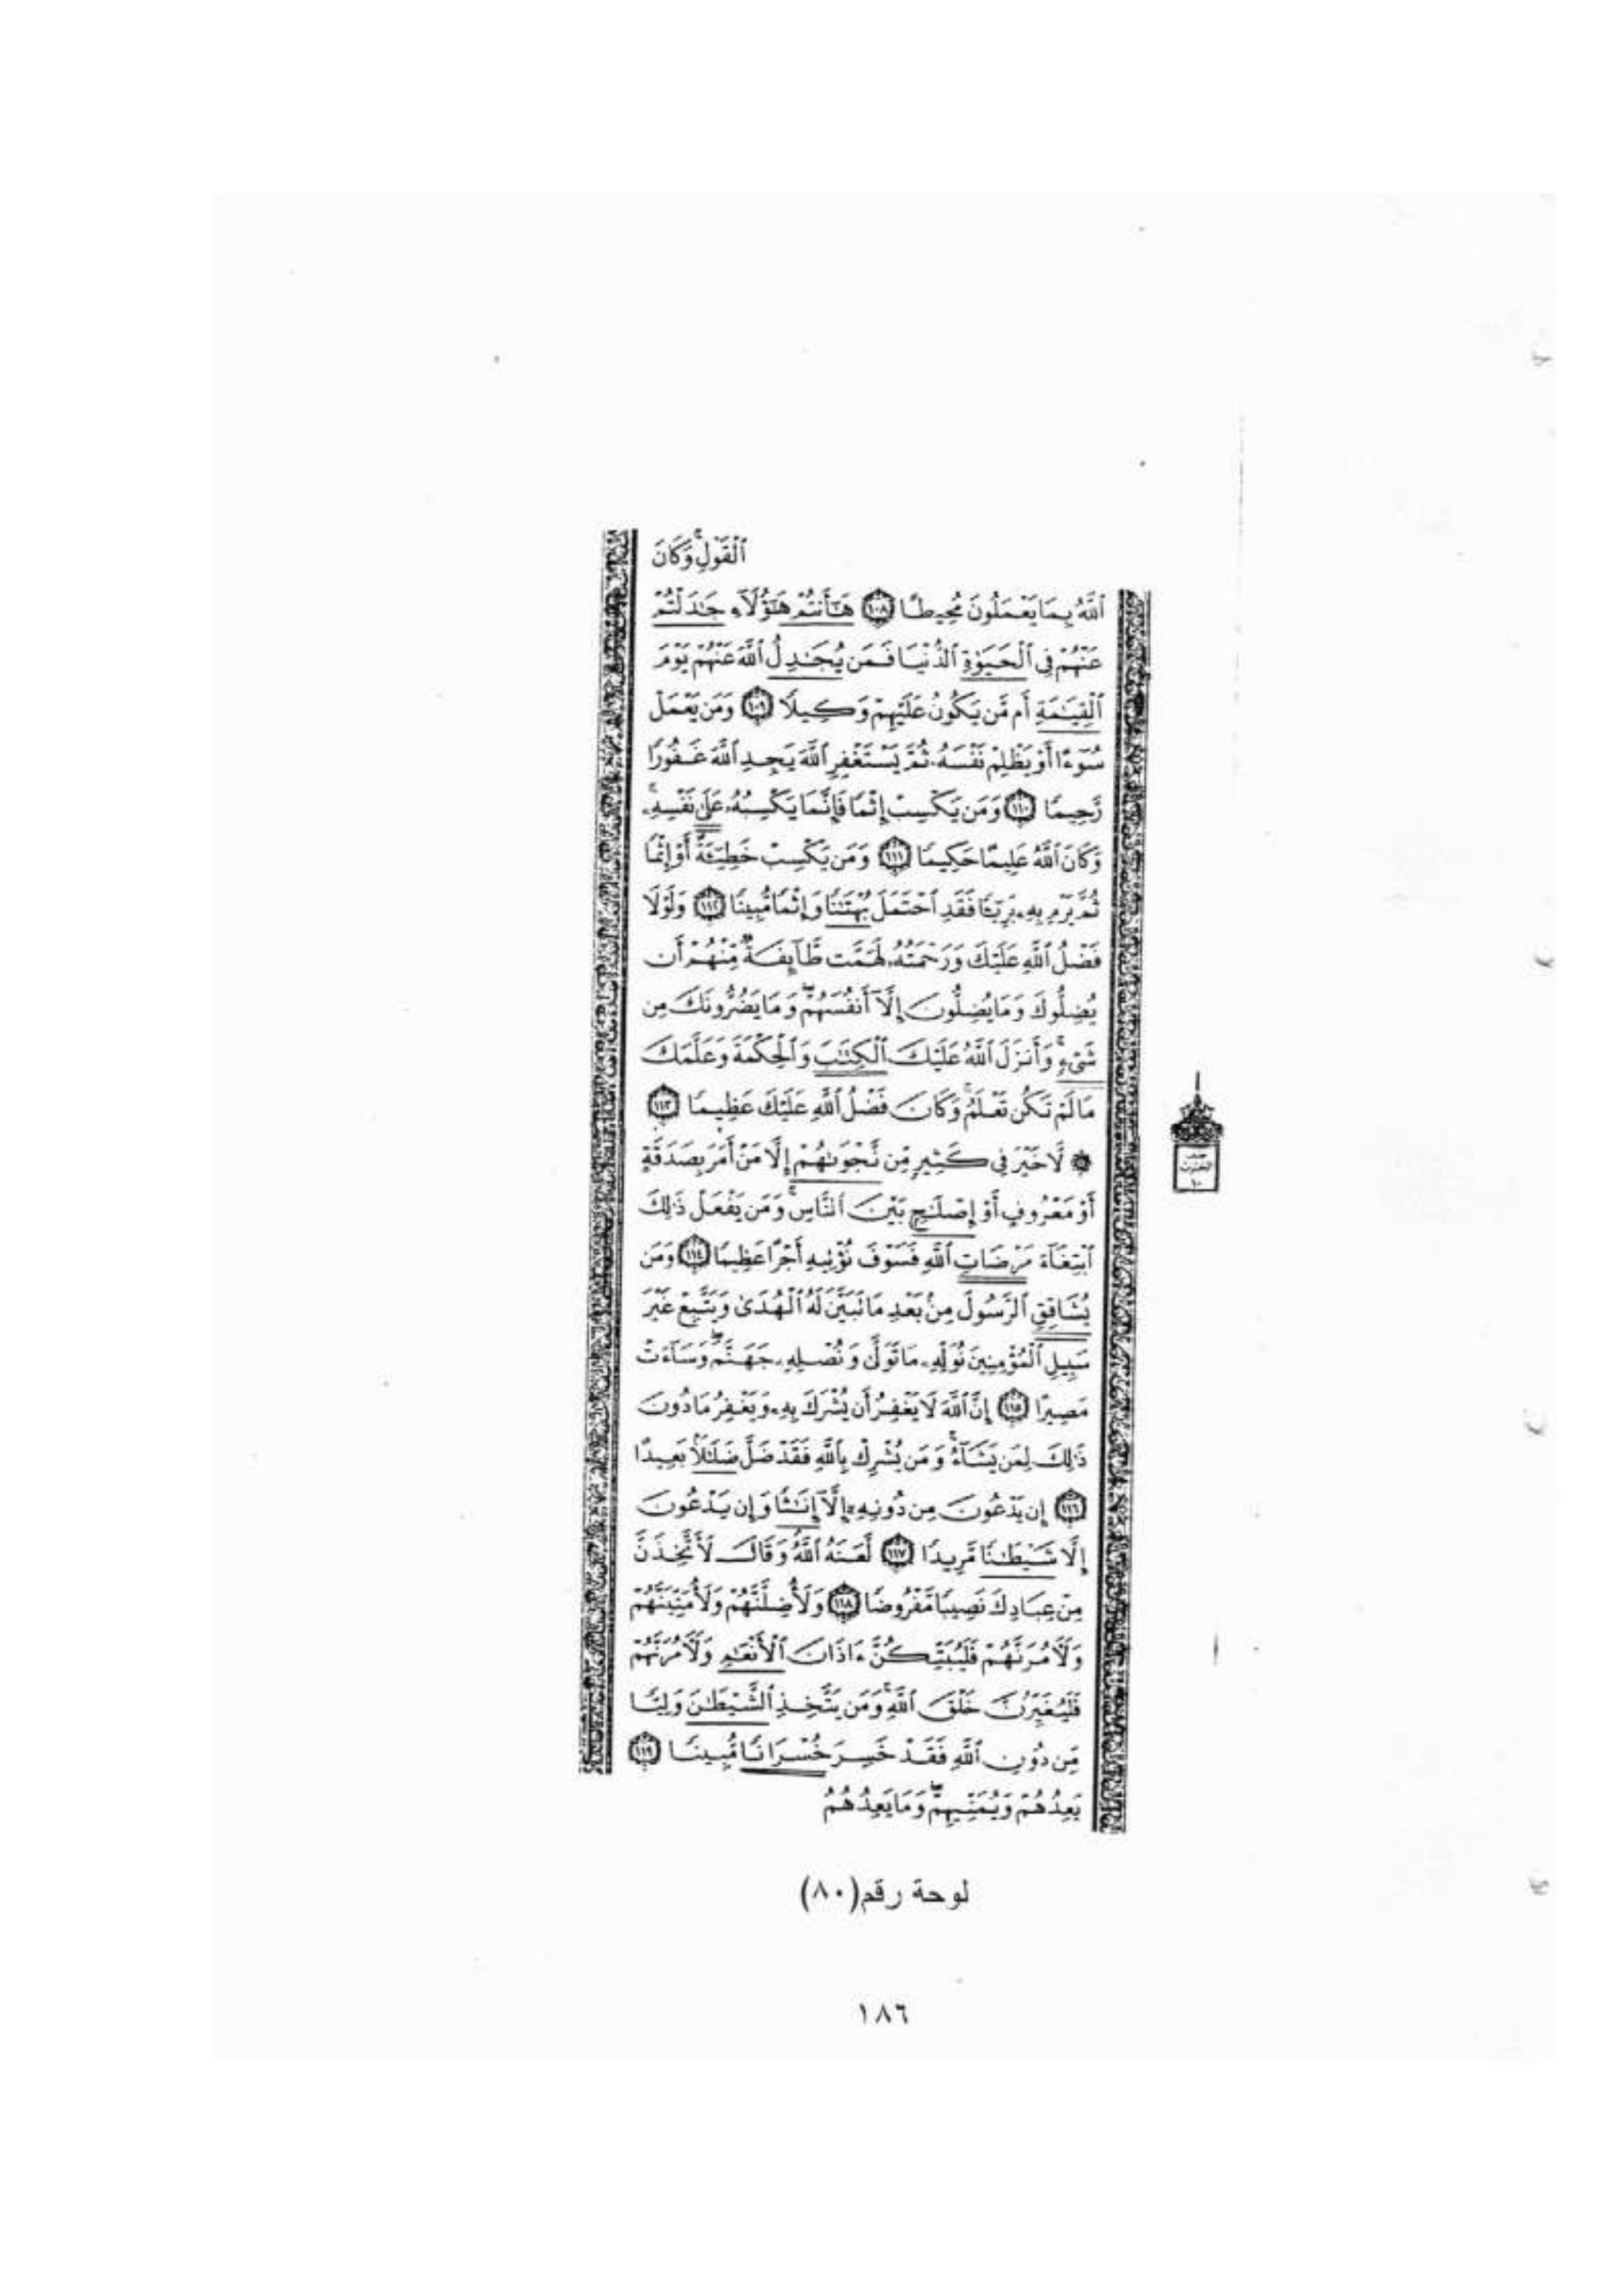 ٱلۡقَوۡلِۚ وَكَانَ
ٱللَّهُ بِمَا يَعۡمَلُونَ مُحِيطًا ١٠٨ هَٰٓأَنتُمۡ هَٰٓؤُلَآءِ جَٰدَلۡتُمۡ
عَنۡهُمۡ فِي ٱلۡحَيَوٰةِ ٱلدُّنۡيَا فَمَن يُجَٰدِلُ ٱللَّهَ عَنۡهُمۡ يَوۡمَ
ٱلۡقِيَٰمَةِ أَم مَّن يَكُونُ عَلَيۡهِمۡ وَكِيلًا ١٠٩ وَمَن يَعۡمَلۡ
سُوٓءًا أَوۡ يَظۡلِمۡ نَفۡسَهُۥ ثُمَّ يَسۡتَغۡفِرِ ٱللَّهَ يَجِدِ ٱللَّهَ غَفُورًا
رَّحِيمًا ١١٠ وَمَن يَكۡسِبۡ إِثۡمًا فَإِنَّمَا يَكۡسِبُهُۥ عَلَىٰ نَفۡسِهِۦۚ
وَكَانَ ٱللَّهُ عَلِيمًا حَكِيمًا ١١١ وَمَن يَكۡسِبۡ خَطِيٓـَٔةً أَوۡ إِثۡمًا
ثُمَّ يَرۡمِ بِهِۦ بَرِيٓـًٔا فَقَدِ ٱحۡتَمَلَ بُهۡتَٰنًا وَإِثۡمًا مُّبِينًا ١١٢ وَلَوۡلَا
فَضۡلُ ٱللَّهِ عَلَيۡكَ وَرَحۡمَتُهُۥ لَهَمَّت طَّآئِفَةٌ مِّنۡهُمۡ أَن
يُضِلُّوكَ وَمَا يُضِلُّونَ إِلَّآ أَنفُسَهُمۡۖ وَمَا يَضُرُّونَكَ مِن
شَيۡءٍۚ وَأَنزَلَ ٱللَّهُ عَلَيۡكَ ٱلۡكِتَٰبَ وَٱلۡحِكۡمَةَ وَعَلَّمَكَ
مَا لَمۡ تَكُن تَعۡلَمُۚ وَكَانَ فَضۡلُ ٱللَّهِ عَلَيۡكَ عَظِيمًا ١١٣
۞ لَّا خَيۡرَ فِي كَثِيرٍ مِّن نَّجۡوَىٰهُمۡ إِلَّا مَنۡ أَمَرَ بِصَدَقَةٍ
أَوۡ مَعۡرُوفٍ أَوۡ إِصۡلَٰحِۭ بَيۡنَ ٱلنَّاسِۚ وَمَن يَفۡعَلۡ ذَٰلِكَ
ٱبۡتِغَآءَ مَرۡضَاتِ ٱللَّهِ فَسَوۡفَ نُؤۡتِيهِ أَجۡرًا عَظِيمًا ١١٤ وَمَن
يُشَاقِقِ ٱلرَّسُولَ مِنۢ بَعۡدِ مَا تَبَيَّنَ لَهُ ٱلۡهُدَىٰ وَيَتَّبِعۡ غَيۡرَ
سَبِيلِ ٱلۡمُؤۡمِنِينَ نُوَلِّهِۦ مَا تَوَلَّىٰ وَنُصۡلِهِۦ جَهَنَّمَۖ وَسَآءَتۡ
مَصِيرًا ١١٥ إِنَّ ٱللَّهَ لَا يَغۡفِرُ أَن يُشۡرَكَ بِهِۦ وَيَغۡفِرُ مَا دُونَ
ذَٰلِكَ لِمَن يَشَآءُۚ وَمَن يُشۡرِكۡ بِٱللَّهِ فَقَدۡ ضَلَّ ضَلَٰلَۢا بَعِيدًا
١١٦ إِن يَدۡعُونَ مِن دُونِهِۦٓ إِلَّآ إِنَٰثًا وَإِن يَدۡعُونَ
إِلَّا شَيۡطَٰنًا مَّرِيدًا ١١٧ لَّعَنَهُ ٱللَّهُۘ وَقَالَ لَأَتَّخِذَنَّ
مِنۡ عِبَادِكَ نَصِيبًا مَّفۡرُوضًا ١١٨ وَلَأُضِلَّنَّهُمۡ وَلَأُمَنِّيَنَّهُمۡ
وَلَأٓمُرَنَّهُمۡ فَلَيُبَتِّكُنَّ ءَاذَانَ ٱلۡأَنۡعَٰمِ وَلَأٓمُرَنَّهُمۡ
فَلَيُغَيِّرُنَّ خَلۡقَ ٱللَّهِۚ وَمَن يَتَّخِذِ ٱلشَّيۡطَٰنَ وَلِيًّا
مِّن دُونِ ٱللَّهِ فَقَدۡ خَسِرَ خُسۡرَانًا مُّبِينًا ١١٩
يَعِدُهُمۡ وَيُمَنِّيهِمۡۖ وَمَا يَعِدُهُمُ
حزب
العشرون
١٠
لوحة رقم (٨٠)
١٨٦